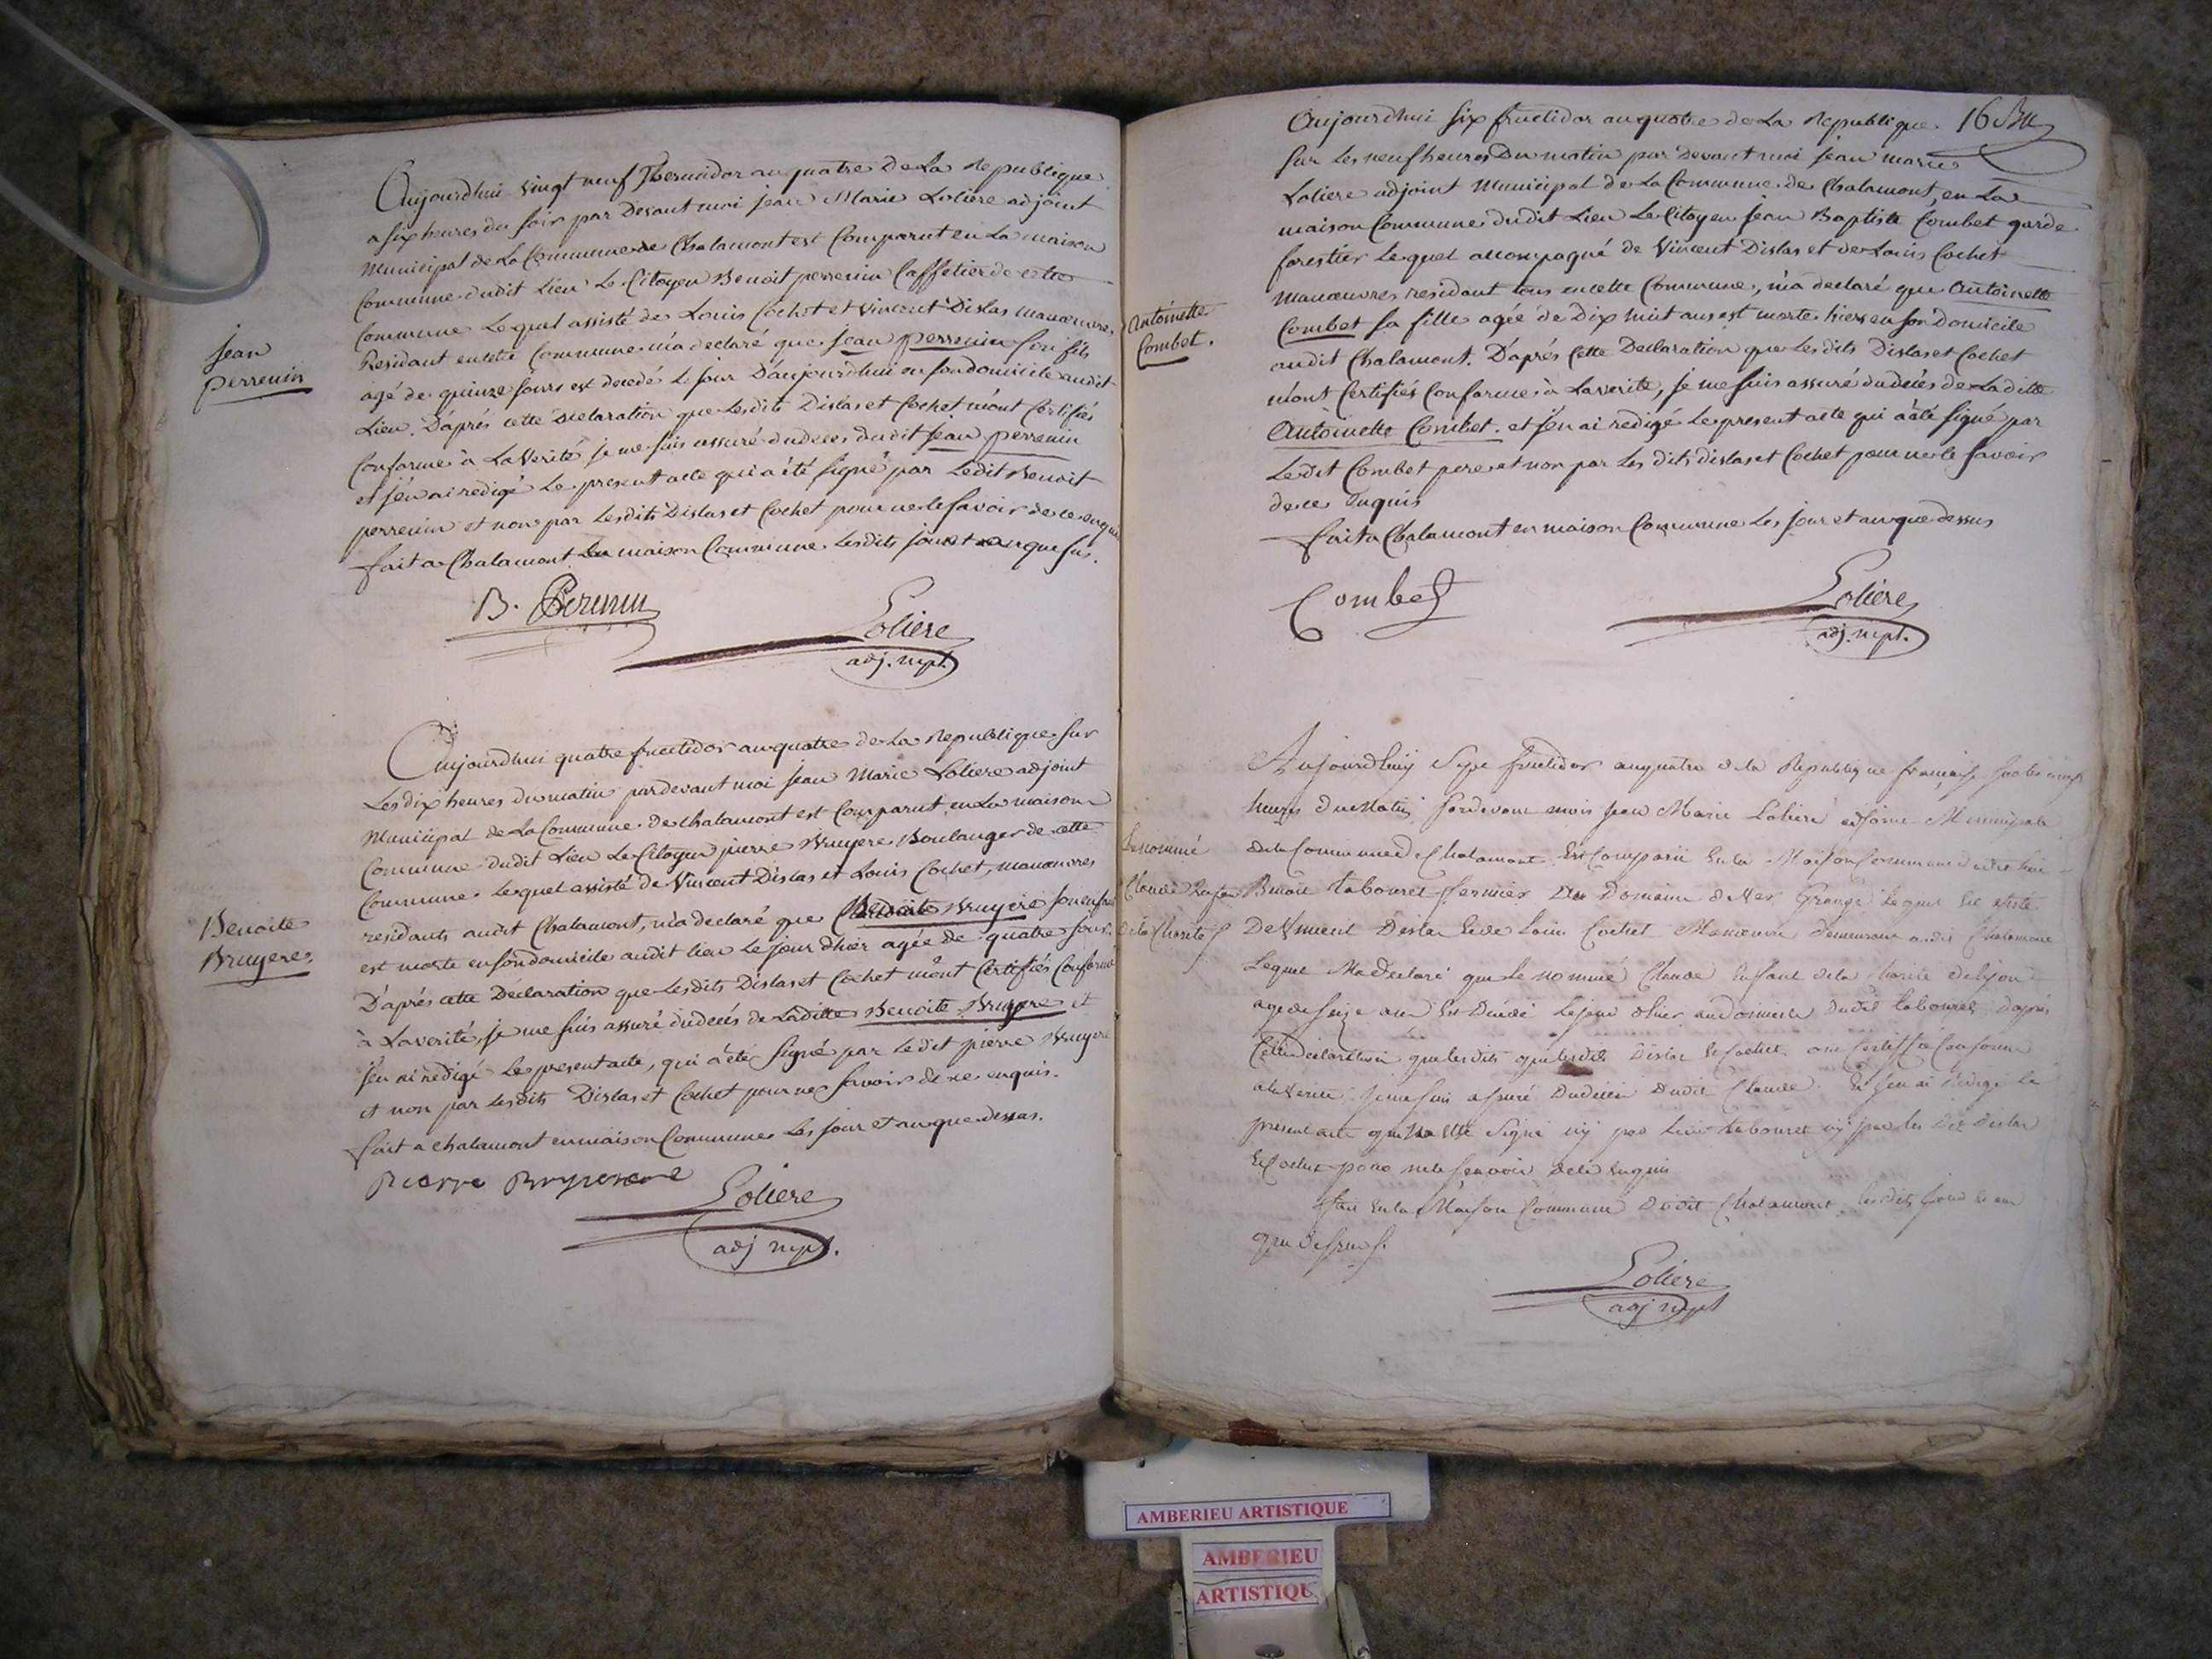 Jean
Perrenin
Aujourdhui vingt neuf Thermidor an quatre de La Republique
a six heures du soir par Devant moi jean Marie Loliere adjoint
Municipal de La Commune de Chalamont est Comparut en La maison
Commune dudit Lieu Le Citoyen Benoit perrenin Caffetier de cette
Commune Lequel assisté de Louis Cochet et Vincent Dislas manoeuvres
Residant en cette Commune m'a declaré que jean perrenin son fils
agé de quinze jours est decedé Le jour D'aujourdhui en son domicile audit
Lieu. D'aprés cette Declaration que Lesdits Dislas et Cochet m'ont Certifiés
Conforme à La Verité je me suis assuré du deces dudit jean perrenin
et j'en ai redigé Le present acte qui a été signé par Ledit Benoit
perrenin et non par Lesdits Dislas et Cochet pour ne le savoir de ce enquis
fait a Chalamont En maison Commune Lesdits jour et an que sus.
B. Perenin
Loliere
adj. mpl.
Benoite
Bruyere
Aujourdhui quatre fructidor an quatre de La Republique sur
Les dix heures du matin pardevant moi jean Marie Loliere adjoint
Municipal de La Commune De chalamont est Comparut en La maison
Commune dudit Lieu Le Citoyen pierre Bruyere Boulanger de cette
Commune Lequel assisté de Vincent Dislas et Louis Cochet, manoeuvres
residants audit Chalamont, m'a declaré que Benoite Bruyere son enfant
est morte en son domicile audit lieu Le jour d'hier agée de quatre jours.
D'aprés cette Declaration que Lesdits Dislas et Cochet m'ont Certifiés Conforme
à La verité, je me suis assuré du decés de Laditte Benoite Bruyere et
j'en ai redigé Le present acte, qui a été signé par Ledit pierre Bruyere
et non par Lesdits Dislas et Cochet pour ne savoir de ce enquis.
fait a chalamont en maison Commune Les jour et an que dessus.
Pierre
Loliere
adj mpl.
16
Antoinette
Combet.
Aujourdhui six fructidor an quatre de La Republique
sur les neuf heures Du matin par Devant moi jean marie
Loliere adjoint Municipal de La Commune de Chalamont, en La
maison Commune dudit Lieu Le Citoyen jean Baptiste Combet garde
forestier Lequel accompagné de Vincent Dislas et de Louis Cochet
manoeuvres residant tous en cette Commune, m'a declaré que Antoinette
Combet sa fille agée de Dix huit ans est morte hier en son Domicile
audit Chalamont. D'aprés Cette Declaration que Lesdits Dislas et Cochet
m'ont Certifiés Conforme à La verité, je me suis assuré du decés de La ditte
Antoinette Combet. et j'en ai redigé Le present acte qui a été signé par
Le dit Combet pere et non par Les dits dislas et Cochet pour ne le savoir
de ce Enquis
fait a Chalamont en maison Commune Les jour et an que dessus
Combet
Loliere
adj. mpl.
Le nommé
Claude
de la Charité
Aujourdhuy Sept fructidor an quatre de la Republique francaise
heures du Matin pardevant mois jean Marie Loliere adjoint Municipale
de la Commune De Chalamont Est Comparu En la Maison Commune
Benoit Labouret fermier Du Domaine
De Vincent Dislas Et de Louis Cochet Manoeuvre demeurant audit Chalamont
Lequel Ma Declaré que Le nommé Claude Enfant de la Charité
age de seize ans Est Decedé Le jour dhier au domicile Dudit Labouret D'aprés
Cette declaration que lesdits que lesdits Dislas Et Cochet ont Certiffié Conforme
a la verité je me suis assuré Du decés Dudit Claude Et jen ai Redigé Le
present acte signé ny par Labouret ny par les Dit Dislas
Et Cochet pour ne le sçavoir de ce Enquis
fait En la Maison Commune Dudit Chalamont lesdits jour et an
que dessus.
Loliere
adj mpl
AMBERIEU ARTISTIQUE
AMBERIEU
ARTISTIQU